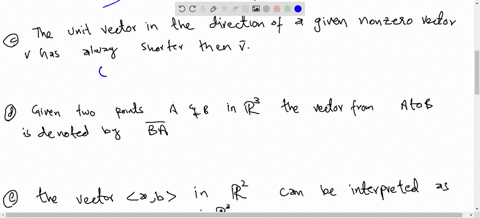 (c) The unit vector in the direction of a given nonzero vector
v has always shorter then v̄.
(
(d) Given two points A & B in ℝ³ the vector from A to B
is denoted by B̅A̅
(e) the vector <a,b> in ℝ² can be interpreted as
in ℝ³